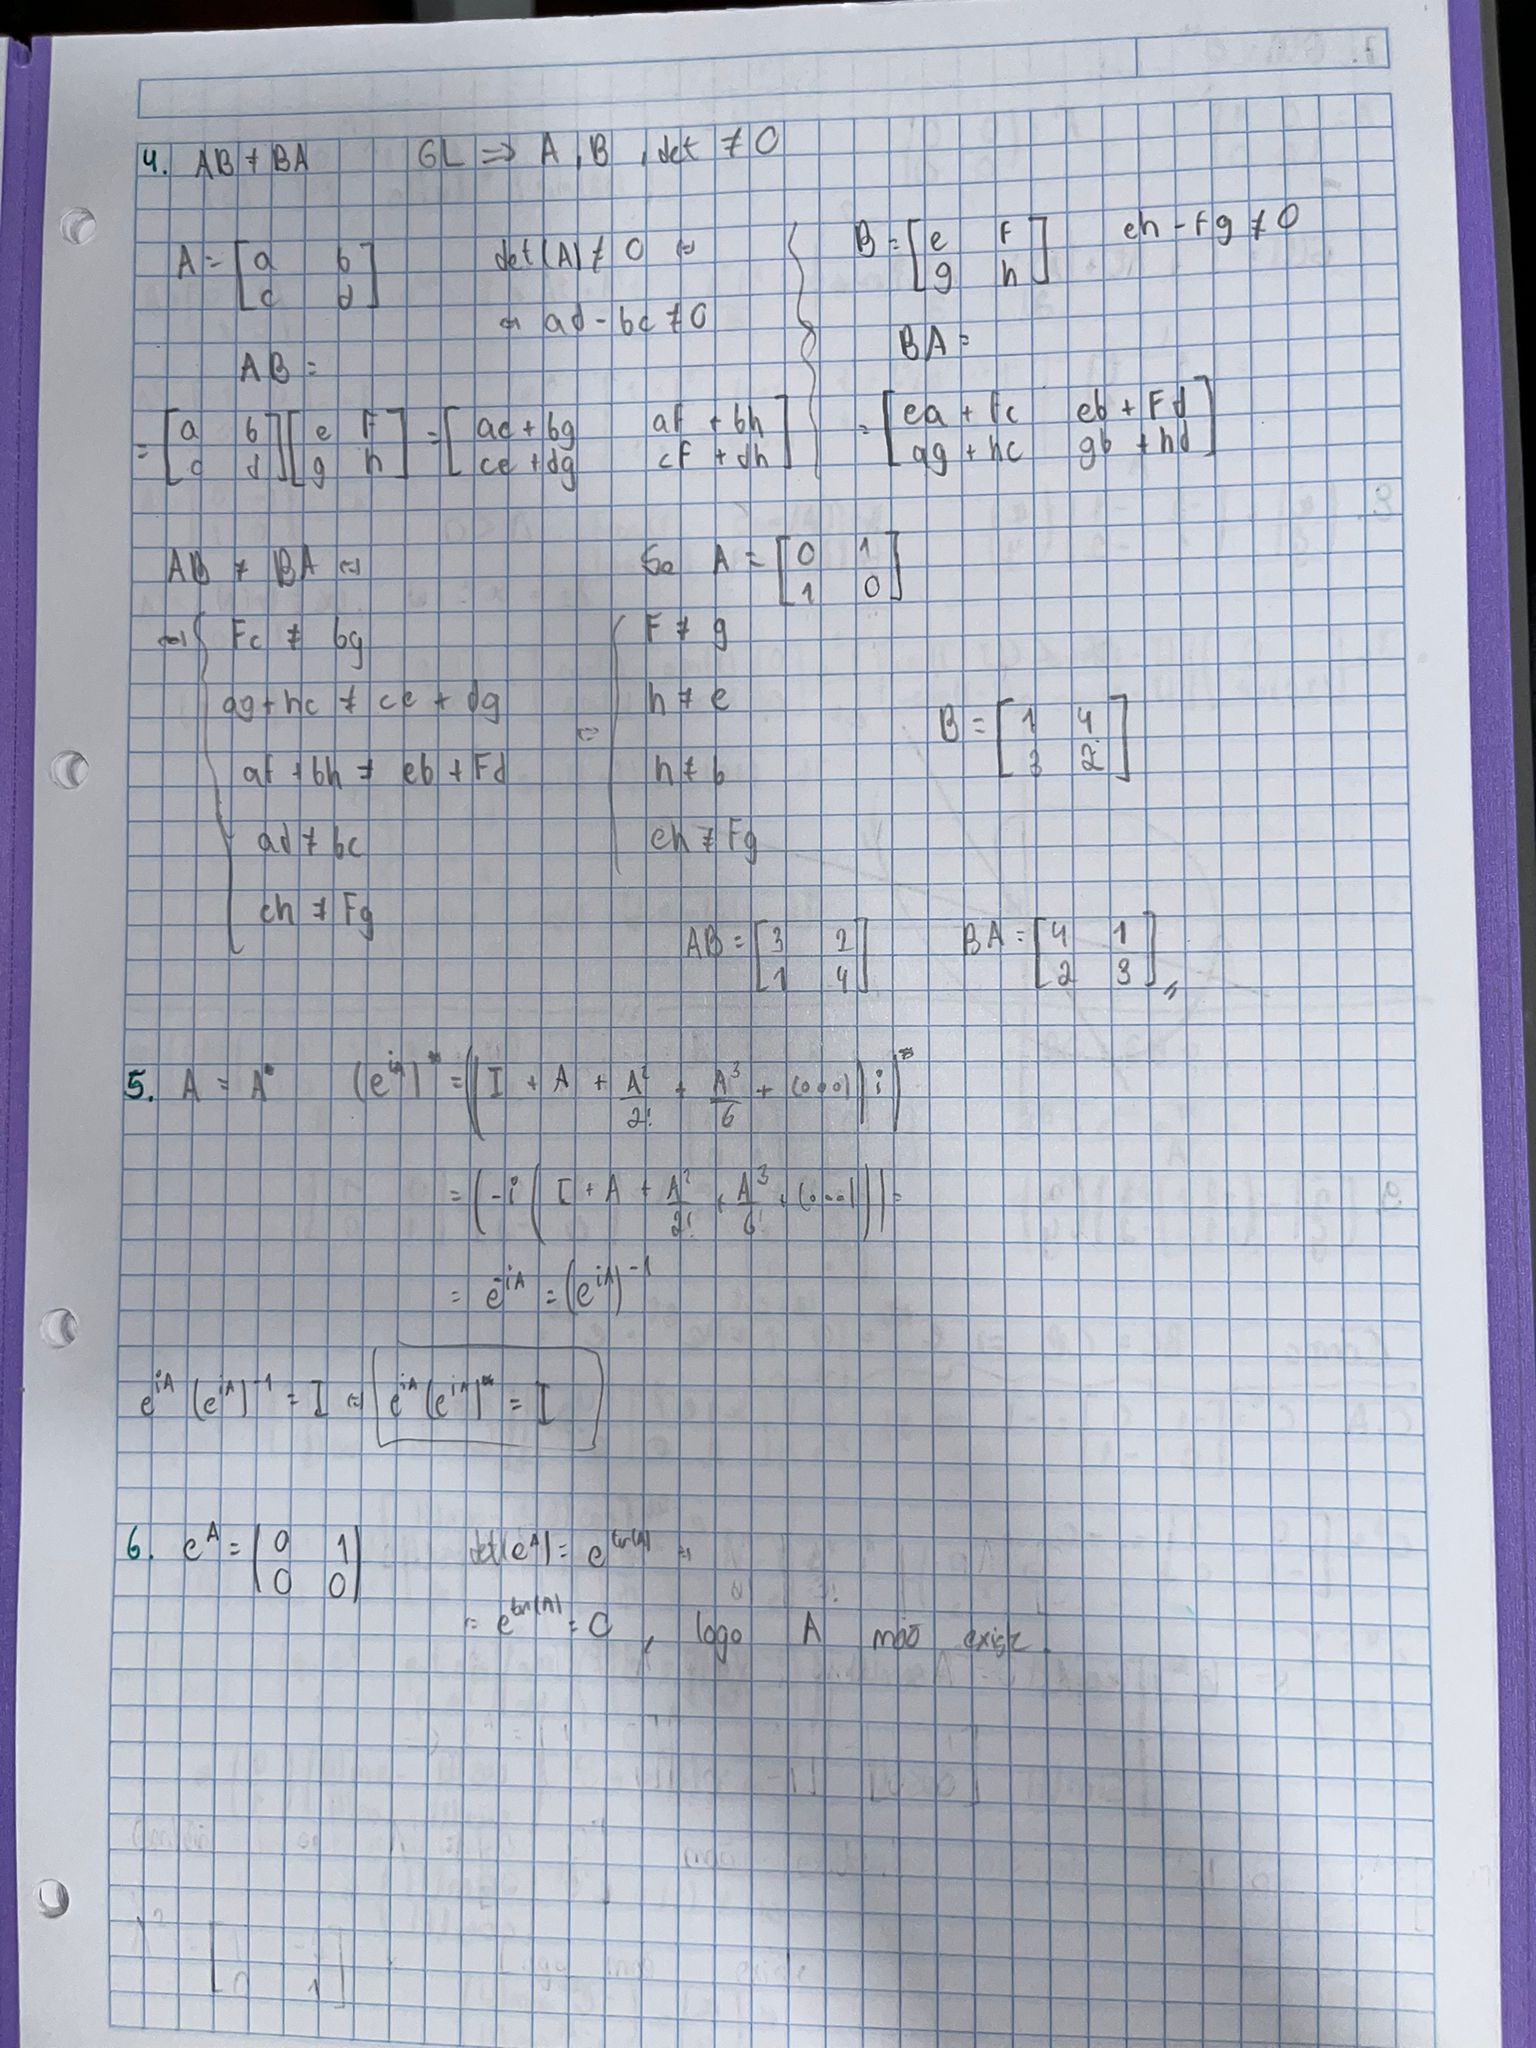 4. AB ≠ BA GL ⇒ A, B, det ≠ 0
A = [a b; c d] det(A) ≠ 0 ⇔
⇔ ad - bc ≠ 0
B = [e F; g h] eh - Fg ≠ 0
AB =
= [a b; c d] [e F; g h] = [ae + bg aF + bh; ce + dg cF + dh]
BA =
= [ea + Fc eb + Fd; ag + hc gb + hd]
AB ≠ BA ⇔
⇔ { Fc ≠ bg
ag + hc ≠ ce + dg
aF + bh ≠ eb + Fd
ad ≠ bc
eh ≠ Fg
Se A = [0 1; 1 0]
= { F ≠ g
h ≠ e
h ≠ b
eh ≠ Fg
B = [1 4; 3 2]
AB = [3 2; 1 4] BA = [4 1; 2 3] //
5. A = A* (e^{iA})* = ((I + A + A²/2! + A³/6 + (...)) i)*
= (-i (I + A + A²/2! + A³/6! + (...))) =
= e^{-iA} = (e^{iA})^{-1}
e^{iA} (e^{iA})^{-1} = I ⇔ e^{iA} (e^{iA})* = I
6. e^A = (0 1; 0 0) det(e^A) = e^{tr(A)} ⇔
= e^{tr(A)} = 0, logo A não existe.